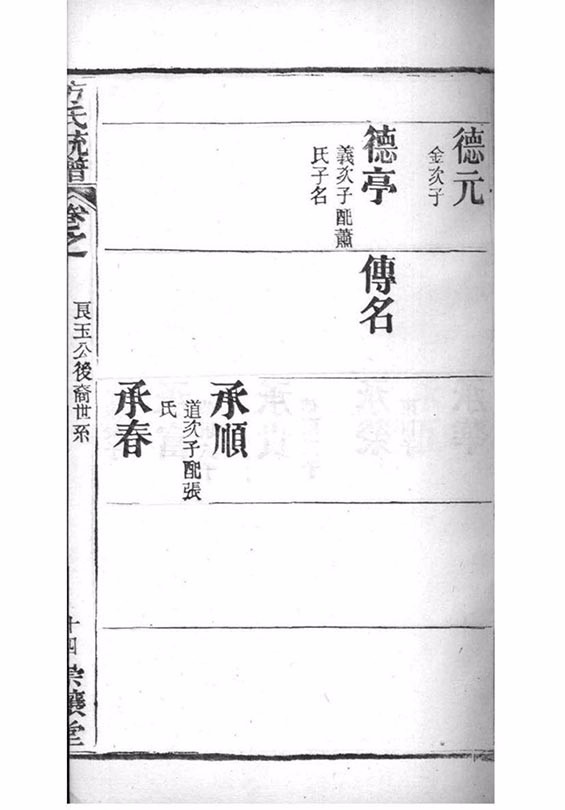 德元
金次子
德亭
義次子配蕭
氏子名
傳名
承順
道次子配張
氏
承春
方氏統譜
卷之
良玉公後裔世系
十四
堂